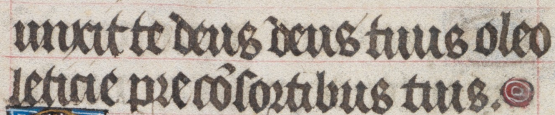 unxit te deus deus tuus oleo
leticie pre cōsortibus tuis.